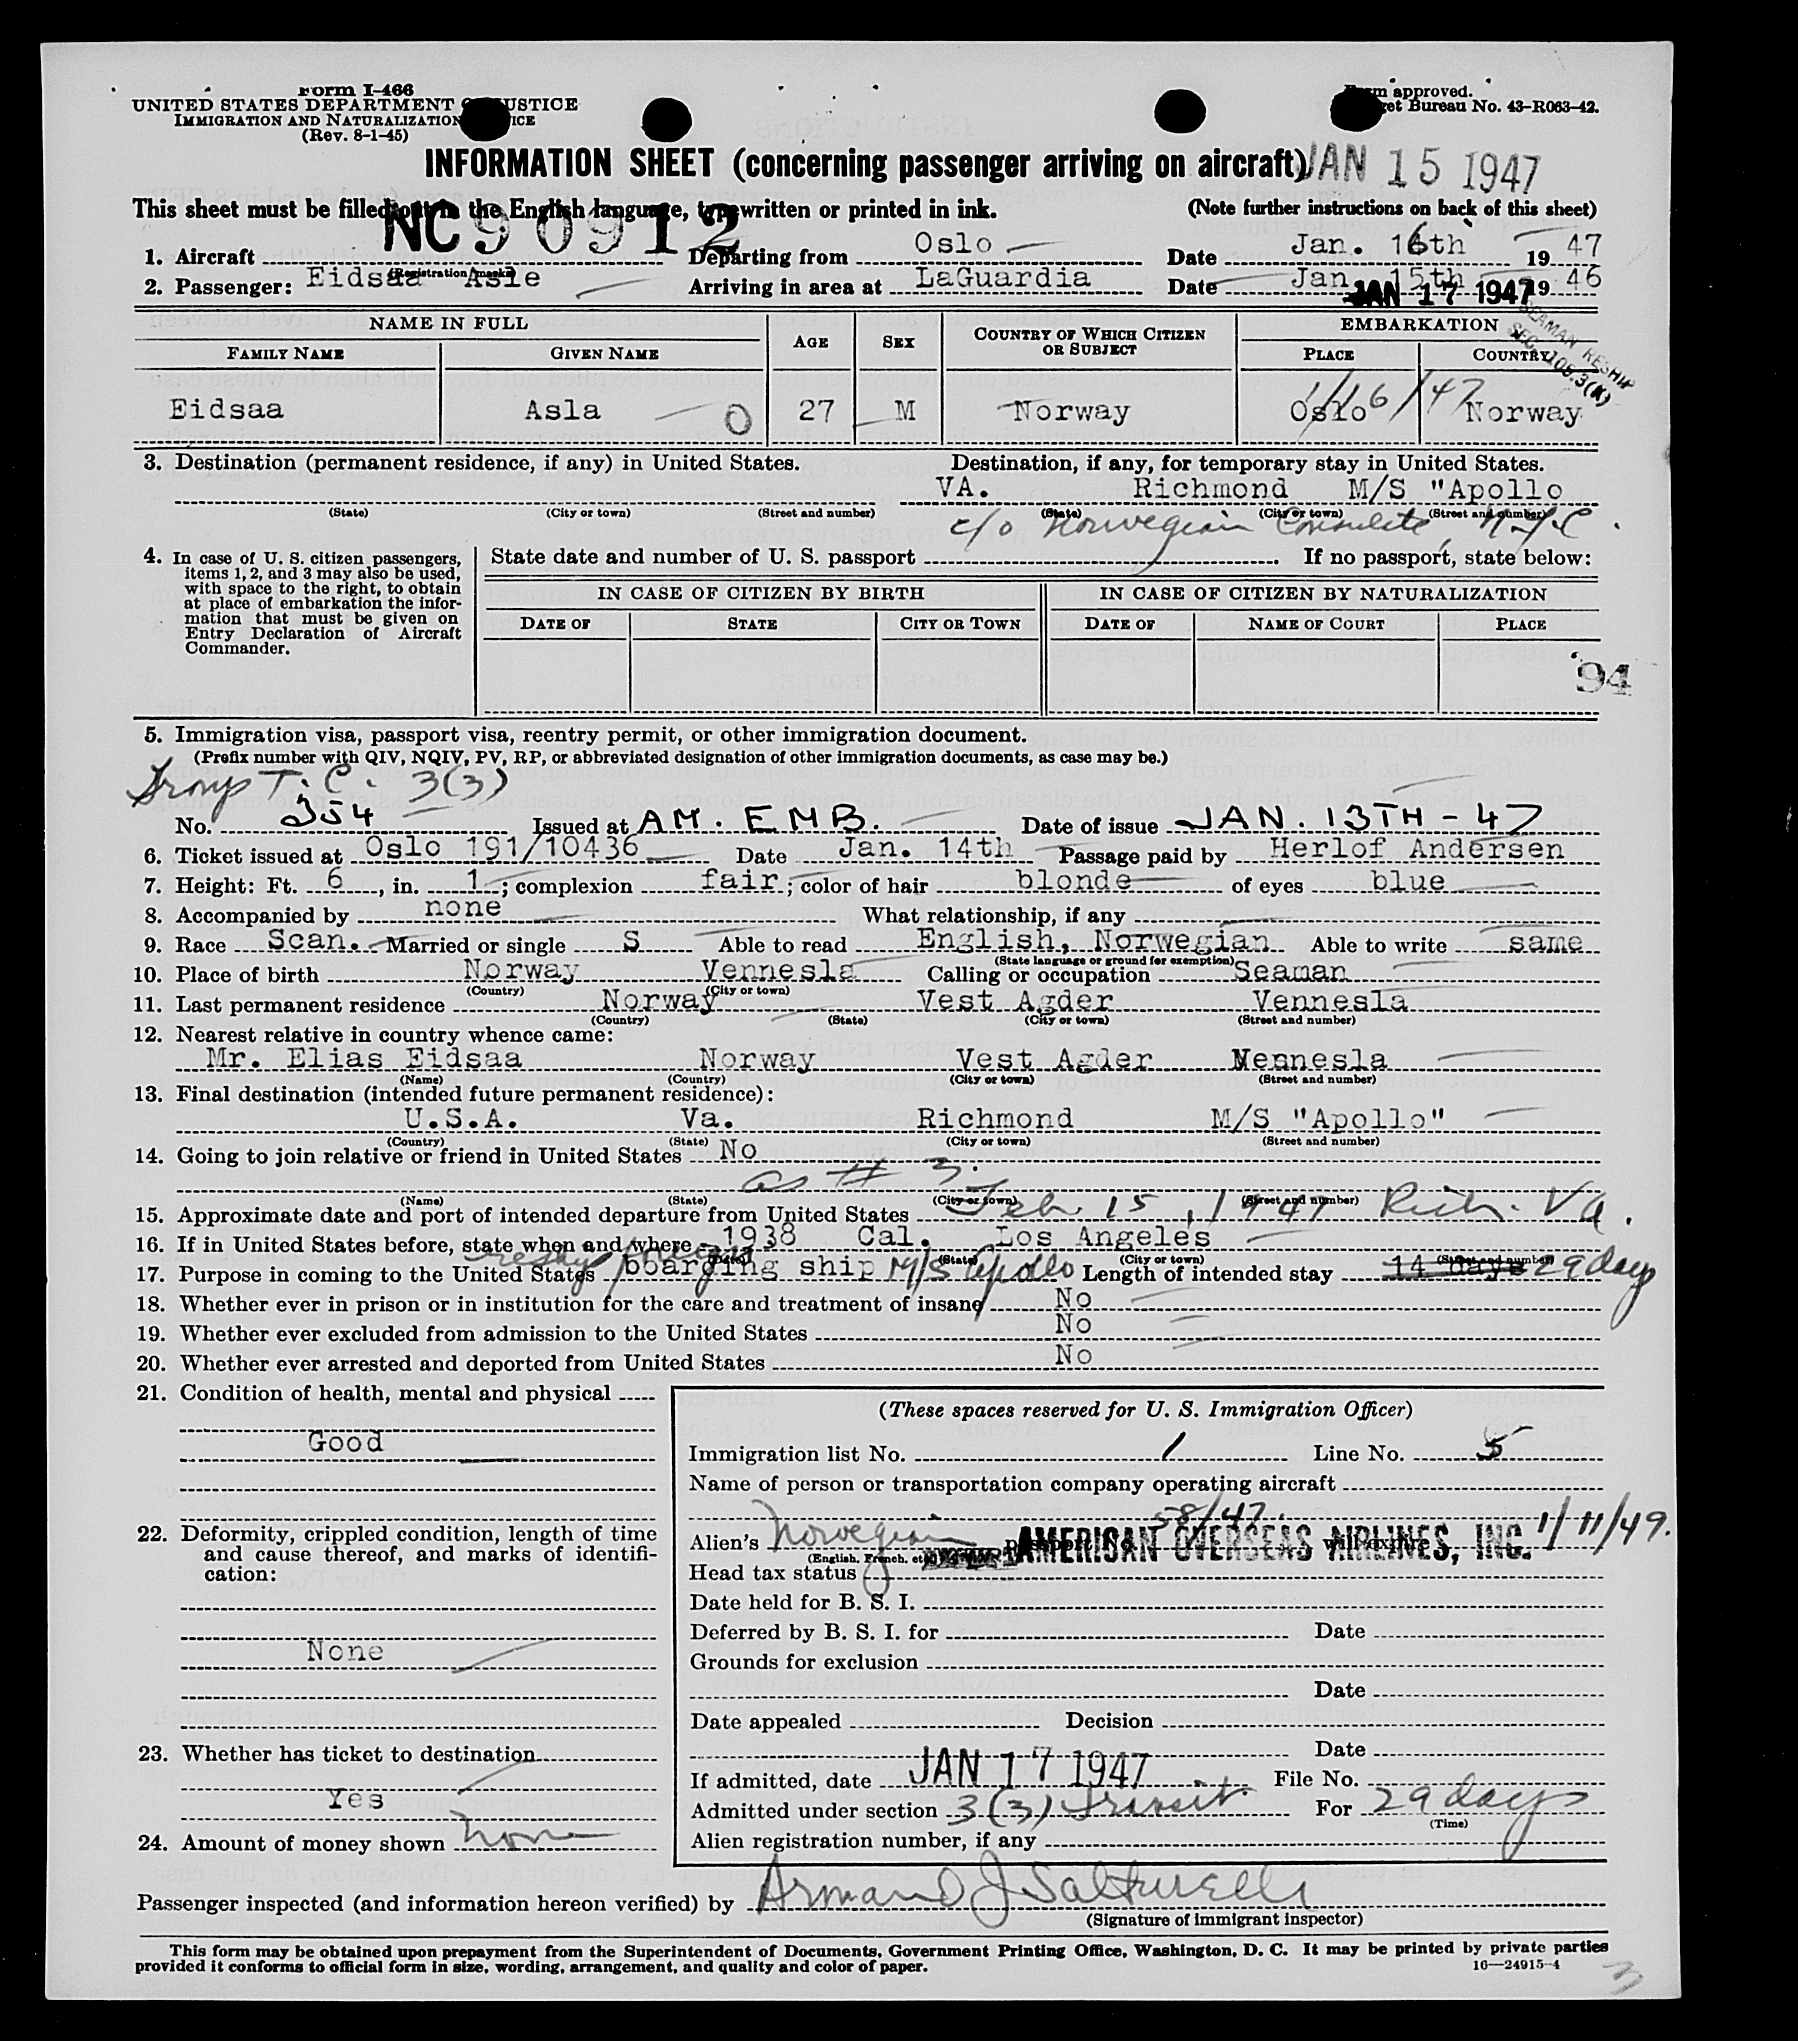 Form I-466
UNITED STATES DEPARTMENT OF JUSTICE
IMMIGRATION AND NATURALIZATION SERVICE
(Rev. 8-1-45)
Form approved.
Budget Bureau No. 43-R063-42.
INFORMATION SHEET (concerning passenger arriving on aircraft) JAN 15 1947
This sheet must be filled out in the English language, typewritten or printed in ink. (Note further instructions on back of this sheet)
1. Aircraft NC 90912 Departing from Oslo Date Jan. 16th 1947
(Registration marks)
2. Passenger: Eidsaa Asle Arriving in area at LaGuardia Date Jan 15th 1946
JAN 17 1947
SEAMAN RESHIP
SEC. 105.3(K)
NAME IN FULL AGE SEX COUNTRY OF WHICH CITIZEN OR SUBJECT EMBARKATION
FAMILY NAME GIVEN NAME PLACE COUNTRY
1/16/47
Eidsaa Asla O 27 M Norway Oslo Norway
3. Destination (permanent residence, if any) in United States. Destination, if any, for temporary stay in United States.
VA. Richmond M/S "Apollo
(State) (City or town) (Street and number) (State) (City or town) (Street and number)
c/o Norwegian Consulate, N.Y.C.
4. In case of U. S. citizen passengers, items 1, 2, and 3 may also be used, with space to the right, to obtain at place of embarkation the information that must be given on Entry Declaration of Aircraft Commander.
State date and number of U. S. passport If no passport, state below:
IN CASE OF CITIZEN BY BIRTH IN CASE OF CITIZEN BY NATURALIZATION
DATE OF STATE CITY OR TOWN DATE OF NAME OF COURT PLACE
94
5. Immigration visa, passport visa, reentry permit, or other immigration document.
(Prefix number with QIV, NQIV, PV, RP, or abbreviated designation of other immigration documents, as case may be.)
T.C. 3(3)
No. 354 Issued at AM. EMB. Date of issue JAN. 13TH - 47
6. Ticket issued at Oslo 191/10436 Date Jan. 14th Passage paid by Herlof Andersen
7. Height: Ft. 6, in. 1; complexion fair; color of hair blonde of eyes blue
8. Accompanied by none What relationship, if any
9. Race Scan. Married or single S Able to read English, Norwegian Able to write same
(State language or ground for exemption)
10. Place of birth Norway Vennesla Calling or occupation Seaman
(Country) (City or town)
11. Last permanent residence Norway Vest Agder Vennesla
(Country) (State) (City or town) (Street and number)
12. Nearest relative in country whence came:
Mr. Elias Eidsaa Norway Vest Agder Vennesla
(Name) (Country) (City or town) (Street and number)
13. Final destination (intended future permanent residence):
U.S.A. Va. Richmond M/S "Apollo"
(Country) (State) (City or town) (Street and number)
14. Going to join relative or friend in United States No
as # 3.
(Name) (State) (City or town) (Street and number)
15. Approximate date and port of intended departure from United States Feb. 15, 1947 Rich. Va.
16. If in United States before, state when and where 1938 Cal. Los Angeles
(Date) (State) (City or town) (Street and number)
17. Purpose in coming to the United States reship foreign boarding ship M/S Apollo Length of intended stay 14 days 29 days
18. Whether ever in prison or in institution for the care and treatment of insane No
19. Whether ever excluded from admission to the United States No
20. Whether ever arrested and deported from United States No
21. Condition of health, mental and physical
Good
22. Deformity, crippled condition, length of time and cause thereof, and marks of identification:
None
23. Whether has ticket to destination
Yes
24. Amount of money shown none
(These spaces reserved for U. S. Immigration Officer)
Immigration list No. 1 Line No. 5
Name of person or transportation company operating aircraft
AMERICAN OVERSEAS AIRLINES, INC.
Alien's Norwegian passport No. 58/47 will expire 1/11/49.
(English, French, etc.)
Head tax status
Date held for B. S. I.
Deferred by B. S. I. for Date
Grounds for exclusion
Date
Date appealed Decision
Date
If admitted, date JAN 17 1947 File No.
Admitted under section 3(3) transit For 29 days
(Time)
Alien registration number, if any
Passenger inspected (and information hereon verified) by Armand J Salturelli
(Signature of immigrant inspector)
This form may be obtained upon prepayment from the Superintendent of Documents, Government Printing Office, Washington, D. C. It may be printed by private parties
provided it conforms to official form in size, wording, arrangement, and quality and color of paper.
16—24915-4